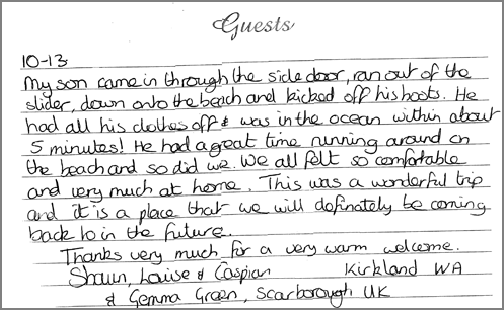 Guests
10-13
My son came in through the side door, ran out of the
slider, down onto the beach and kicked off his boots. He
had all his clothes off & was in the ocean within about
5 minutes! He had a great time running around on
the beach and so did we. We all felt so comfortable
and very much at home. This was a wonderful trip
and it is a place that we will definately be coming
back to in the future.
Thanks very much for a very warm welcome.
Shaun, Louise & Caspian Kirkland WA
& Gemma Green, Scarborough UK